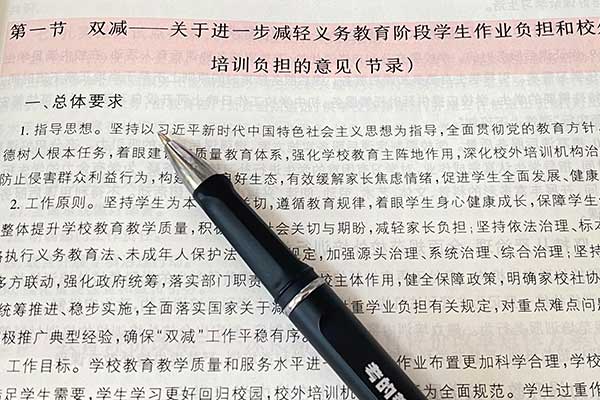 第一节 双减——关于进一步减轻义务教育阶段学生作业负担和校外
培训负担的意见(节录)
一、总体要求
1. 指导思想。坚持以习近平新时代中国特色社会主义思想为指导,全面贯彻党的教育方针
德树人根本任务,着眼建 质量教育体系,强化学校教育主阵地作用,深化校外培训机构治
防止侵害群众利益行为,构建 良好生态,有效缓解家长焦虑情绪,促进学生全面发展、健康
2. 工作原则。坚持学生为本 关切,遵循教育规律,着眼学生身心健康成长,保障学生
整体提升学校教育教学质量,积 社会关切与期盼,减轻家长负担;坚持依法治理、标本
执行义务教育法、未成年人保护法 规定,加强源头治理、系统治理、综合治理;坚持
多方联动,强化政府统筹,落实部门职责 校主体作用,健全保障政策,明确家校社协
统筹推进、稳步实施,全面落实国家关于减 重学业负担有关规定,对重点难点问题
极推广典型经验,确保“双减”工作平稳有序。
工作目标。学校教育教学质量和服务水平进一 作业布置更加科学合理,学校
足学生需要,学生学习更好回归校园,校外培训机 为全面规范。学生过重作
考的